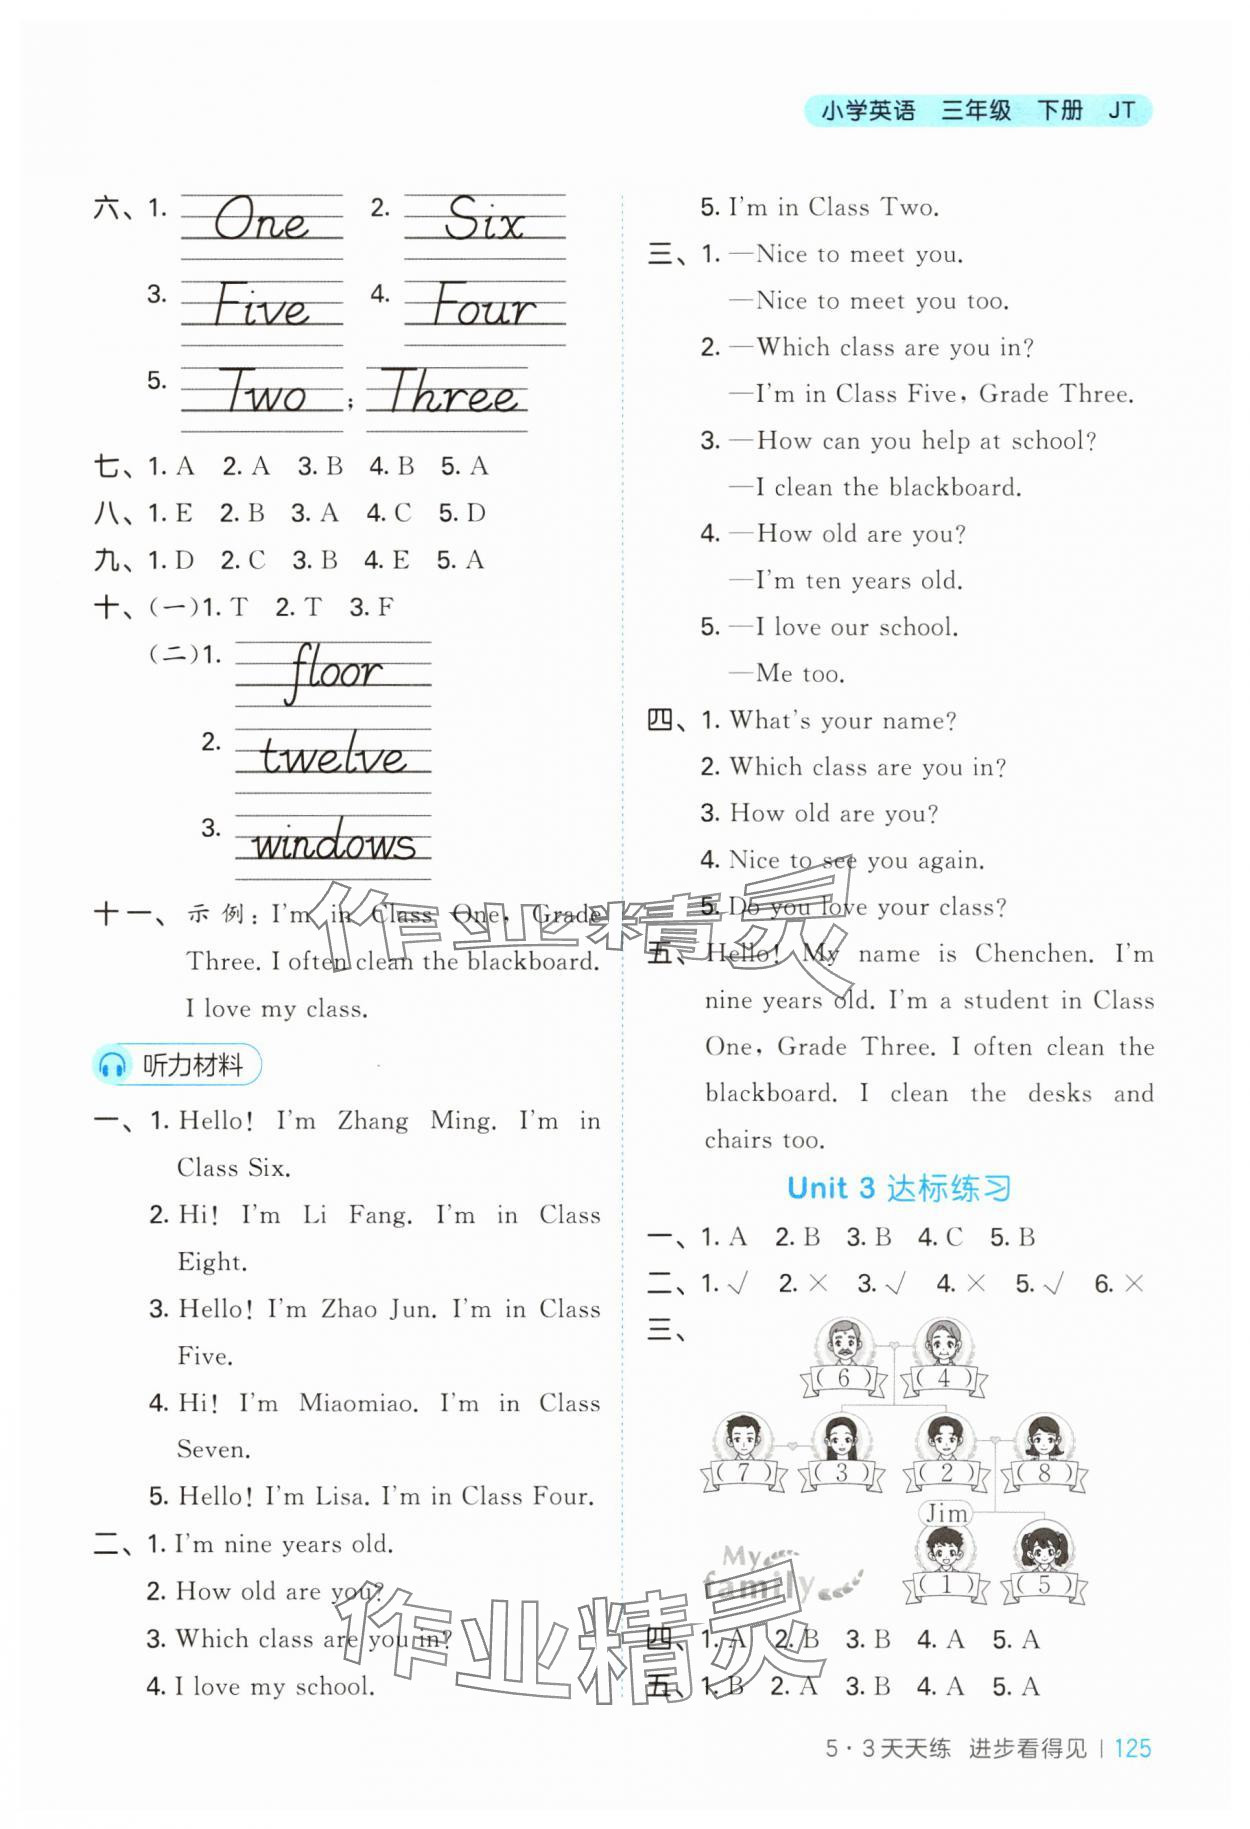 小学英语 三年级 下册 JT
六、1. One 2. Six
3. Five 4. Four
5. Two ; Three
七、1. A 2. A 3. B 4. B 5. A
八、1. E 2. B 3. A 4. C 5. D
九、1. D 2. C 3. B 4. E 5. A
十、(一)1. T 2. T 3. F
(二)1. floor
2. twelve
3. windows
十一、示例: I'm in Class One, Grade
Three. I often clean the blackboard.
I love my class.
听力材料
一、1. Hello! I'm Zhang Ming. I'm in
Class Six.
2. Hi! I'm Li Fang. I'm in Class
Eight.
3. Hello! I'm Zhao Jun. I'm in Class
Five.
4. Hi! I'm Miaomiao. I'm in Class
Seven.
5. Hello! I'm Lisa. I'm in Class Four.
二、1. I'm nine years old.
2. How old are you?
3. Which class are you in?
4. I love my school.
5. I'm in Class Two.
三、1. —Nice to meet you.
—Nice to meet you too.
2. —Which class are you in?
—I'm in Class Five, Grade Three.
3. —How can you help at school?
—I clean the blackboard.
4. —How old are you?
—I'm ten years old.
5. —I love our school.
—Me too.
四、1. What's your name?
2. Which class are you in?
3. How old are you?
4. Nice to see you again.
5. Do you love your class?
五、Hello! My name is Chenchen. I'm
nine years old. I'm a student in Class
One, Grade Three. I often clean the
blackboard. I clean the desks and
chairs too.
Unit 3 达标练习
一、1. A 2. B 3. B 4. C 5. B
二、1. √ 2. × 3. √ 4. × 5. √ 6. ×
三、
(6) (4)
(7) (3) (2) (8)
Jim
(1) (5)
My
family
四、1. A 2. B 3. B 4. A 5. A
五、1. B 2. A 3. B 4. A 5. A
5·3天天练 进步看得见 | 125
作业精灵
作业精灵